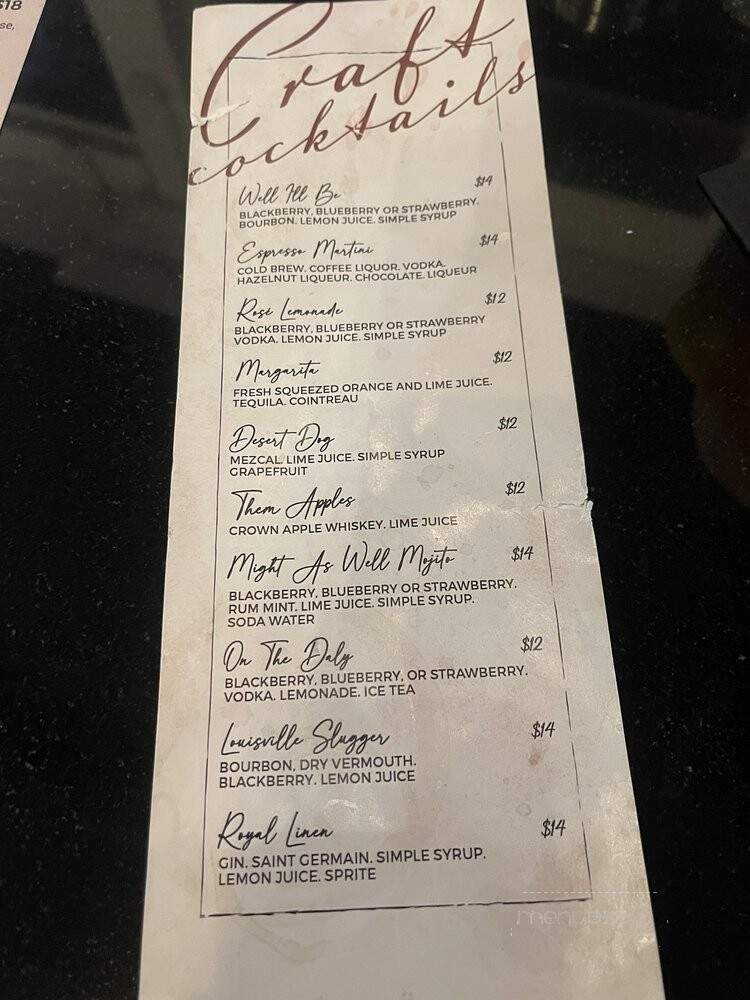 $18
se,
Craft
cocktails
Well Ill Be $14
BLACKBERRY, BLUEBERRY OR STRAWBERRY.
BOURBON. LEMON JUICE. SIMPLE SYRUP
Espresso Martini $14
COLD BREW. COFFEE LIQUOR. VODKA.
HAZELNUT LIQUEUR. CHOCOLATE. LIQUEUR
Rosé Lemonade $12
BLACKBERRY, BLUEBERRY OR STRAWBERRY
VODKA. LEMON JUICE. SIMPLE SYRUP
Margarita $12
FRESH SQUEEZED ORANGE AND LIME JUICE.
TEQUILA. COINTREAU
Desert Dog $12
MEZCAL. LIME JUICE. SIMPLE SYRUP
GRAPEFRUIT
Them Apples $12
CROWN APPLE WHISKEY. LIME JUICE
Might As Well Mojito $14
BLACKBERRY, BLUEBERRY OR STRAWBERRY.
RUM MINT. LIME JUICE. SIMPLE SYRUP.
SODA WATER
On The Daly $12
BLACKBERRY, BLUEBERRY, OR STRAWBERRY.
VODKA. LEMONADE. ICE TEA
Louisville Slugger $14
BOURBON, DRY VERMOUTH.
BLACKBERRY. LEMON JUICE
Royal Linen $14
GIN. SAINT GERMAIN. SIMPLE SYRUP.
LEMON JUICE. SPRITE